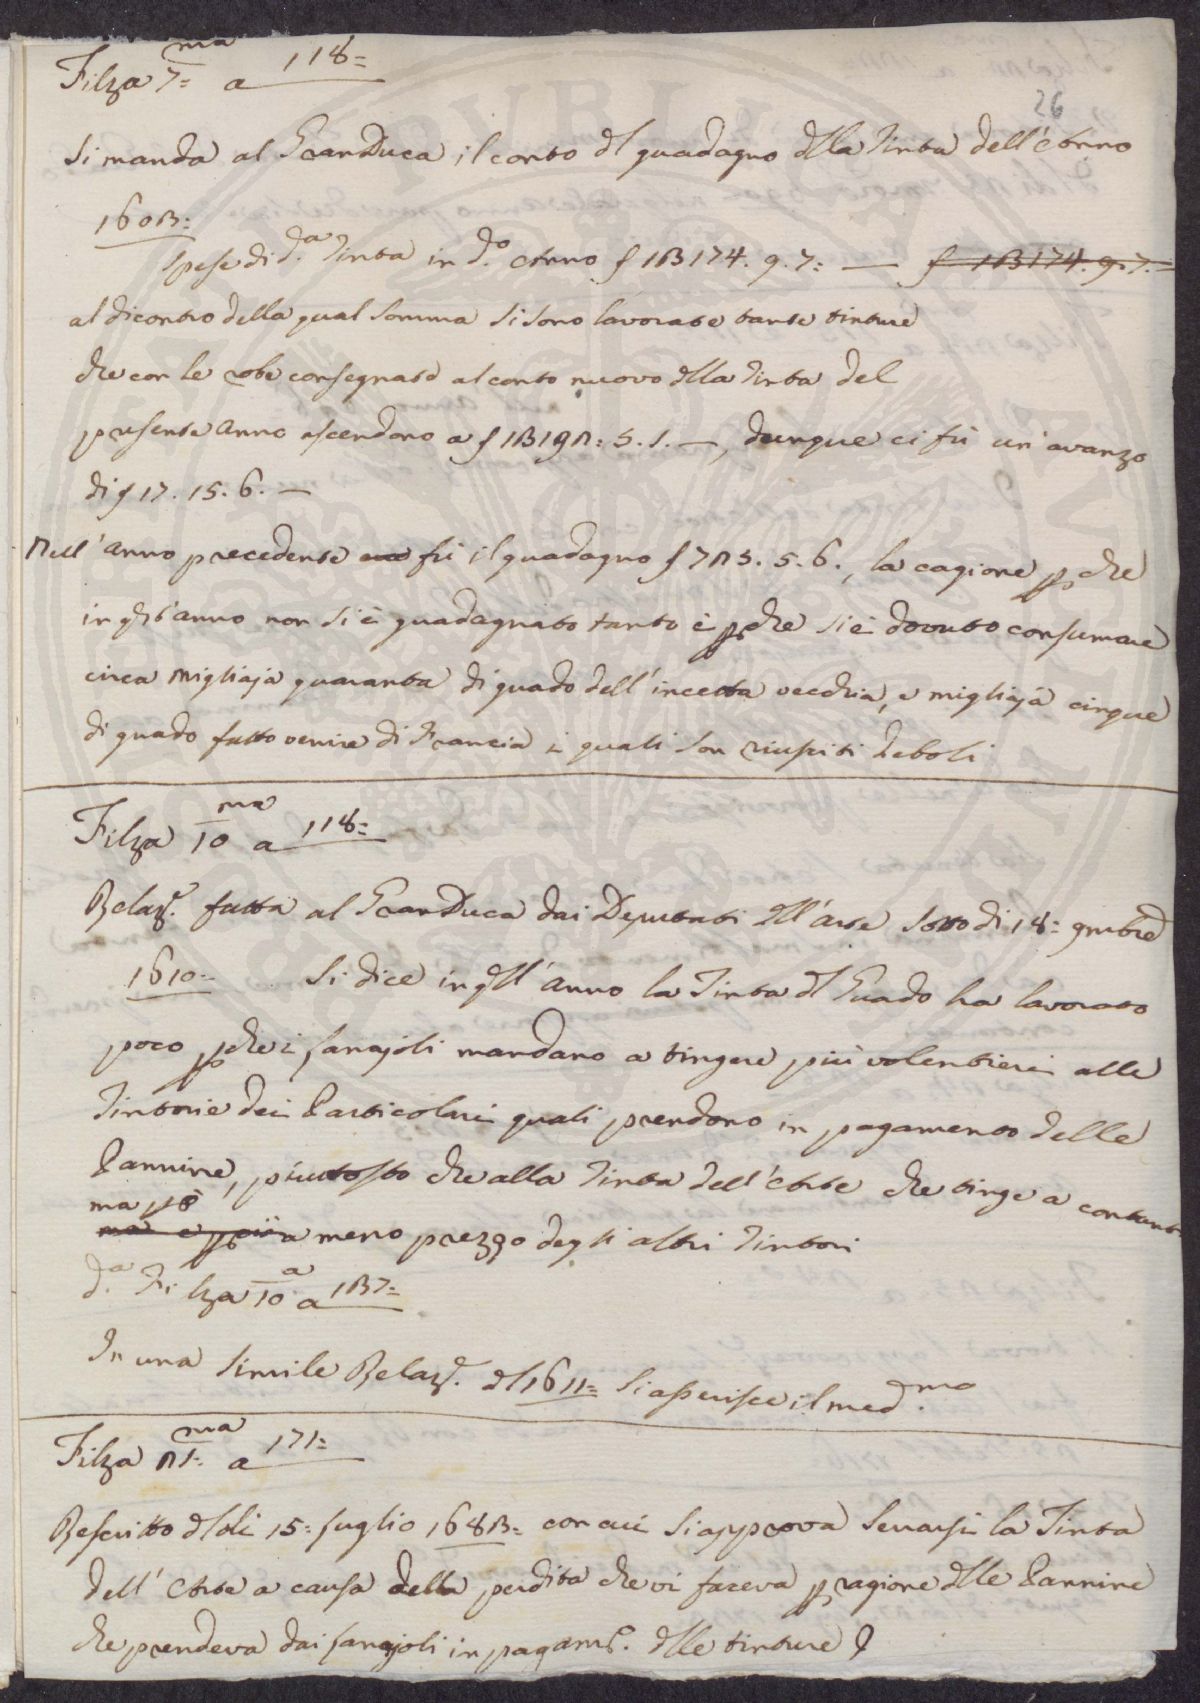 Filza 7=ma a 118=
26
Si manda al GranDuca il conto dl guadagno dlla Tinta dell'Anno
160
Spese di d.a Tinta in d.o Anno
al dicontro della qual somma si sono lavorate tante tinture
che con le robe consegnate al conto nuovo dlla Tinta del
presente anno ascendono a dunque ci fù un'avanzo
di f 17. 15. 6. —
Nell'anno precedente fù il guadagno la cagione pche
in qsto anno non si è guadagnato tanto è pche si è dovuto consumare
circa migliaja quaranta di guado dell'incetta vecchia, e migliaja cinque
di guado fatto venire di Francia i quali son riusciti deboli
Filza 10ma a 118=
Relaz.e fatta al GranDuca dai Deputati dll'arte sotto di 18= 9mbre
1610= Si dice in qll'anno la Tinta dl Guado ha lavorato
poco pche i lanajoli mandano a tingere più volentieri alle
Tintorie dei Particolari quali prendono in pagamento delle
Pannine, piuttosto che alla Tinta dell'Arte che tinge a contanti
ma pò
a meno prezzo degli altri Tintori
d.a Filza 10a a 137=
In una simile Relaz.e dl 1611= si asserisce il med.mo
Filza ma a 171=
Rescritto dl di 15= luglio con cui si approva serrarsi la Tinta
dell'Arte a causa della perdita che vi faceva p ragione dlle Pannine
che prendeva dai lanajoli in pagam.o dlle tinture